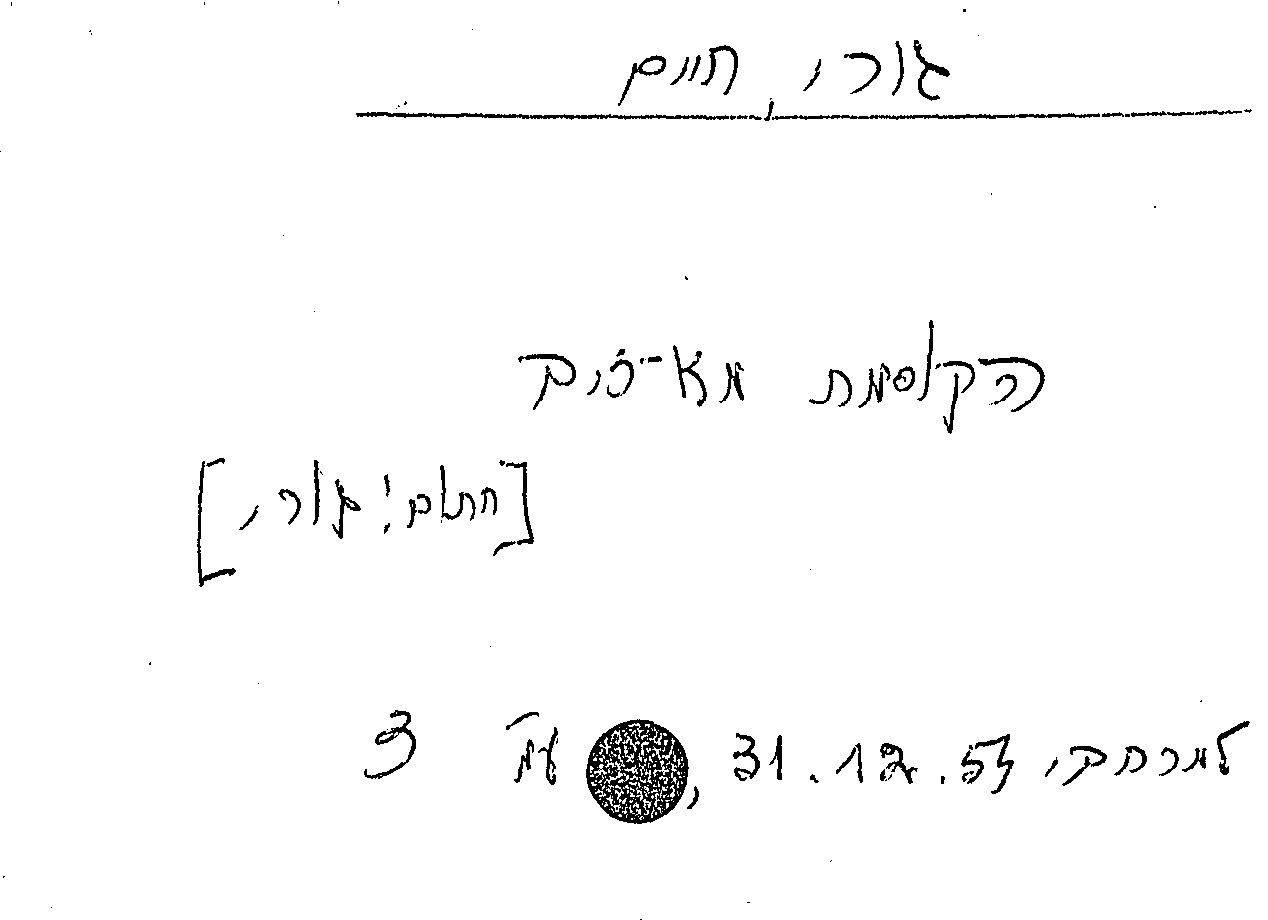 גורי, חיים
הקוסמת מאי-זים
[חתום: גורי,]
למרחב, 31.12.57, עמ' 3